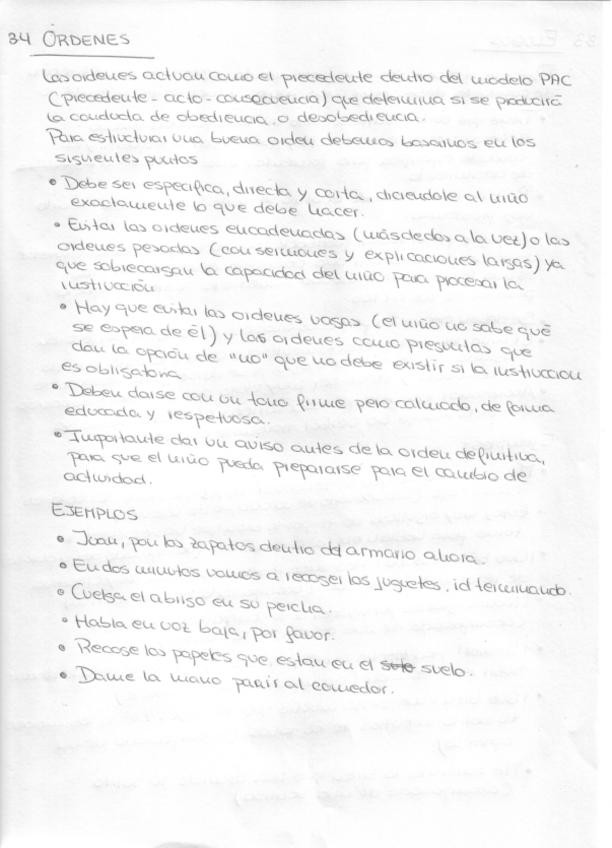 34 ÓRDENES
Las ordenes actuan como el precedente dentro del modelo PAC
(precedente - acto - consecuencia) que determina si se producirá
la conducta de obediencia o desobediencia.
Para estructurar una buena orden debemos basarnos en los
siguientes puntos
• Debe ser especifica, directa y corta, diciendole al niño
exactamente lo que debe hacer.
• Evitar las ordenes encadenadas (más de dos a la vez) o las
ordenes pesadas (con sermones y explicaciones largas) ya
que sobrecargan la capacidad del niño para procesar la
instrucción
• Hay que evitar las ordenes vagas (el niño no sabe qué
se espera de él) y las ordenes como preguntas que
dan la opción de "no" que no debe existir si la instruccion
es obligatoria
• Deben darse con un tono firme pero calmado, de forma
educada y respetuosa.
• Importante dar un aviso antes de la orden definitiva,
para que el niño pueda prepararse para el cambio de
actividad.
EJEMPLOS
• Juan, pon los zapatos dentro del armario ahora.
• En dos minutos vamos a recoger los juguetes, id terminando.
• Cuelga el abrigo en su percha.
• Habla en voz baja, por favor.
• Recoge los papeles que estan en el suelo.
• Dame la mano para ir al comedor.